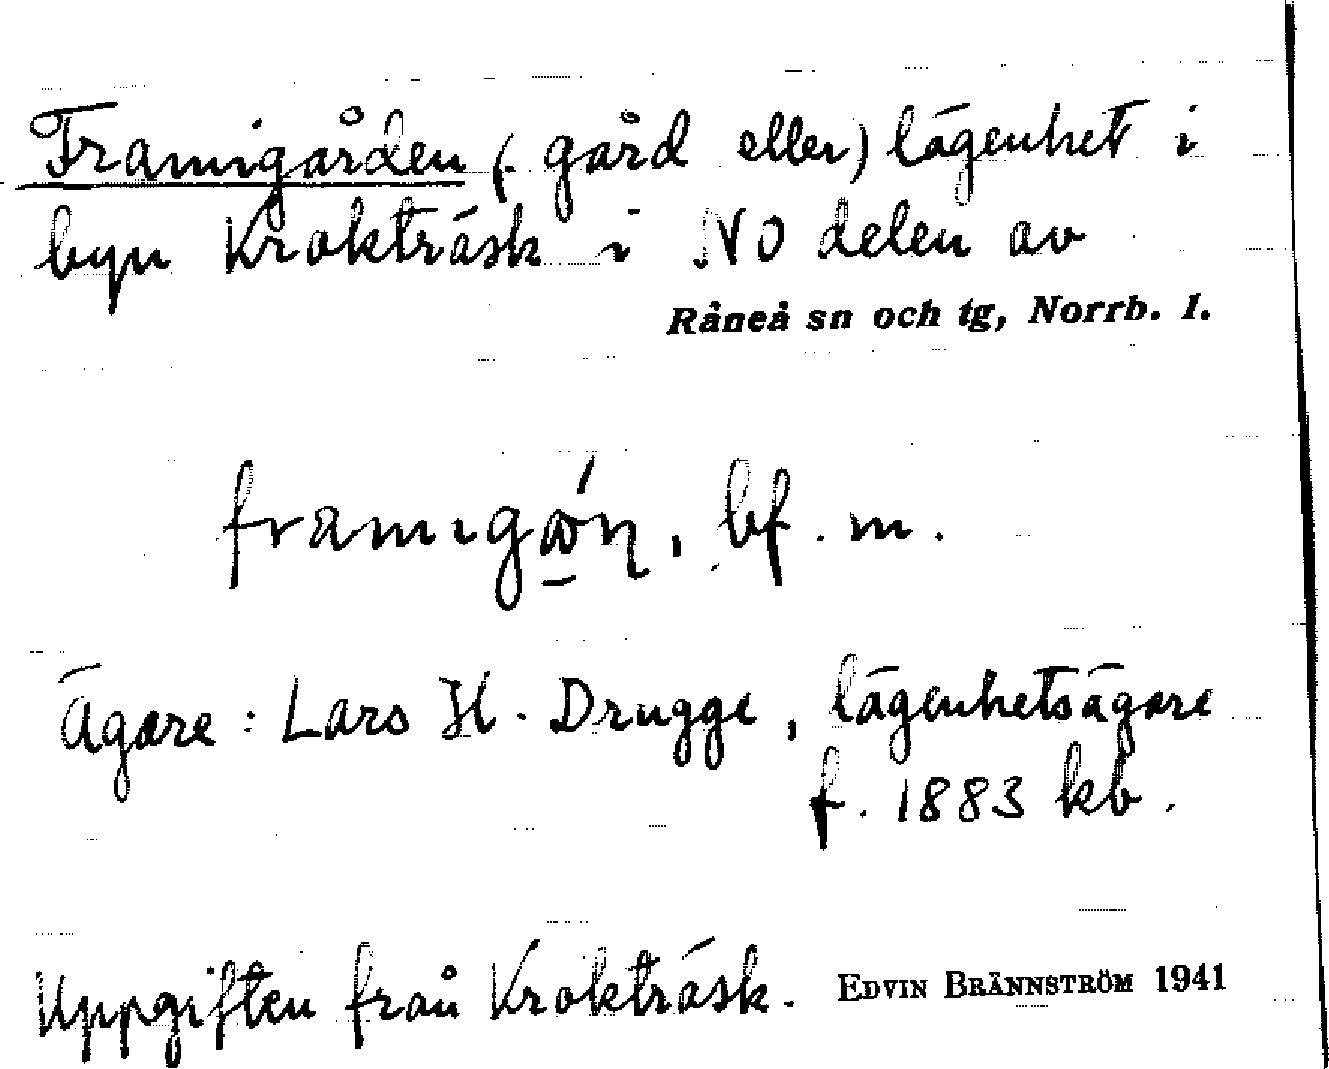 Framigården (. gård eller) lägenhet i
byn Krokträsk i NO delen av
Råneå sn och tg, Norrb. l.
framıgɷ̱́n, bf. m.
Ägare: Lars H. Drugge, lägenhetsägare
f. 1883 kb.
Uppgiften från Krokträsk. EDVIN BRÄNNSTRÖM 1941